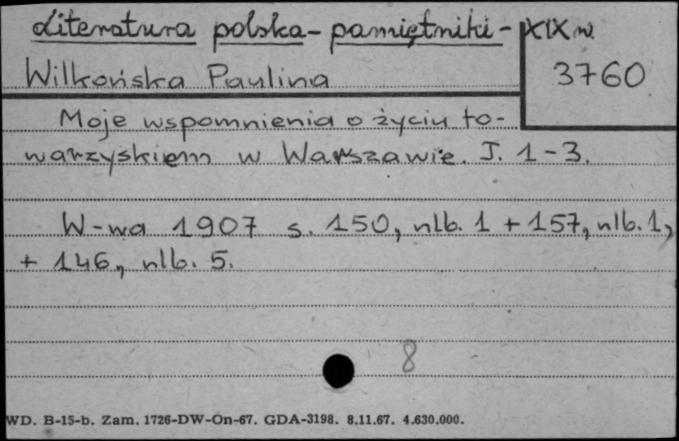 Literatura polska - pamiętniki - XIX w.
Wilkońska Paulina
3760
Moje wspomnienia o życiu to-
warzyskiem w Warszawie. T. 1-3.
W-wa 1907 s. 150, nlb. 1 + 157, nlb. 1,
+ 146, nlb. 5.
8
WD. B-15-b. Zam. 1726-DW-On-67. GDA-3198. 8.11.67. 4.630.000.